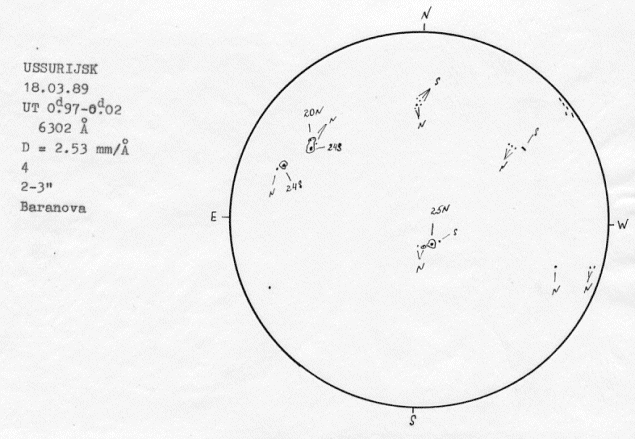 USSURIJSK
18.03.89
UT 0ᵈ.97-0ᵈ.02
6302 Å
D = 2.53 mm/Å
4
2-3"
Baranova
N
S
N
20N
N
24S
N
24S
S
N
E
W
25N
S
N
N
N
S